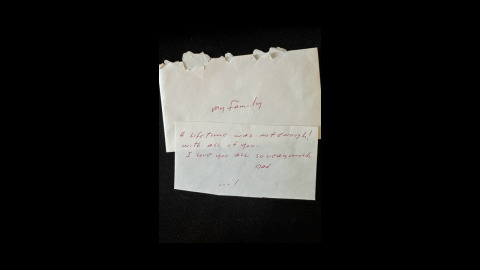 my family
A lifetime was not enough!
with all of you.
I love you all so very much
Dad
...!